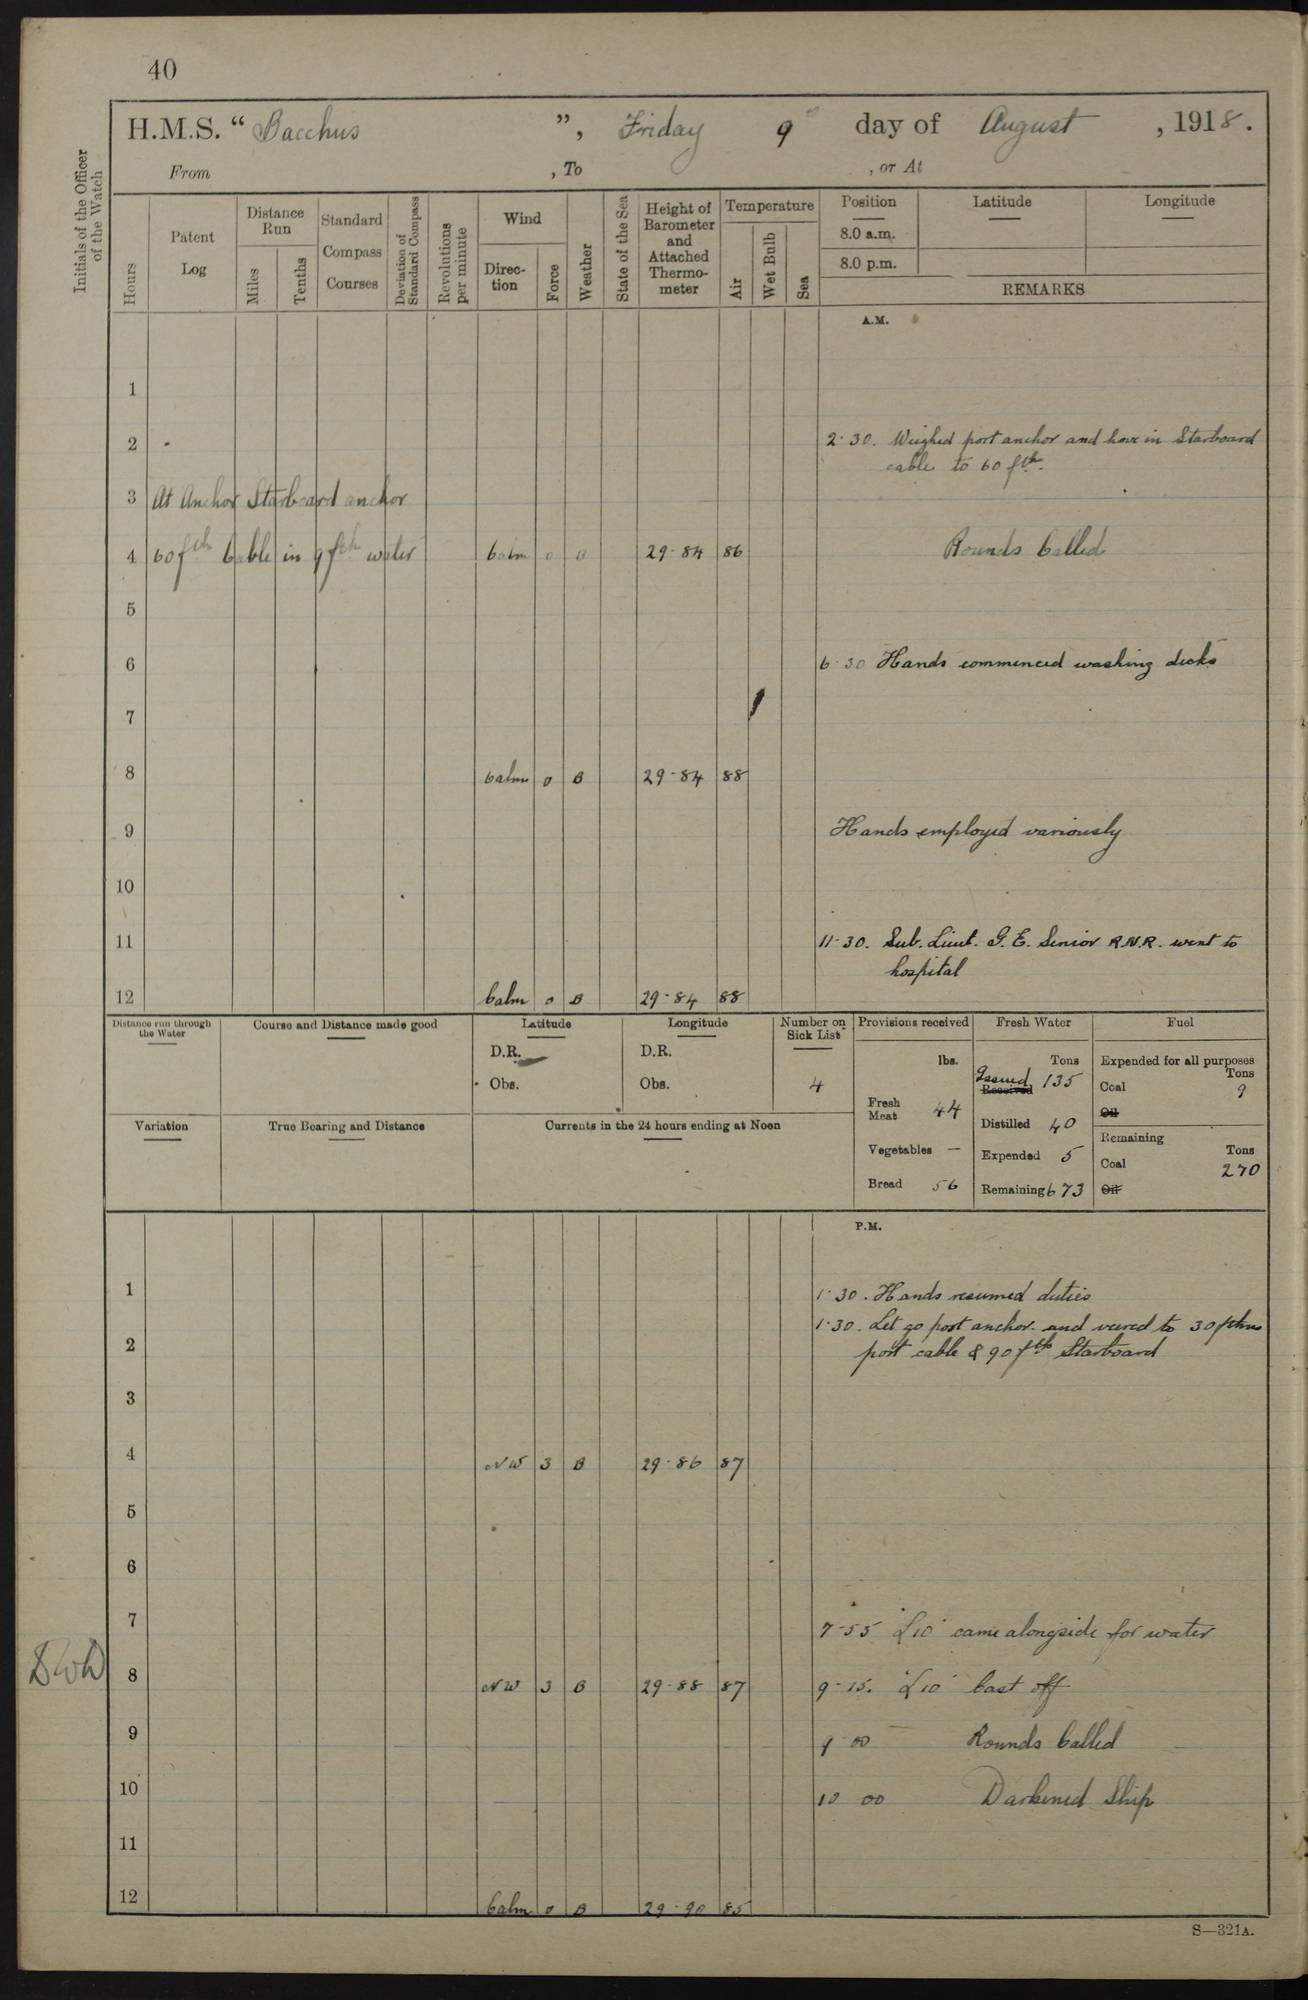 40
H.M.S. “ Bacchus ”, Friday 9th day of August , 1918.
From , To , or At
Initials of the Officer of the Watch
Hours
Patent Log
Distance Run
Miles
Tenths
Standard Compass Courses
Deviation of Standard Compass
Revolutions per minute
Wind
Direction
Force
Weather
State of the Sea
Height of Barometer and Attached Thermometer
Temperature
Air
Wet Bulb
Sea
Position Latitude Longitude
8.0 a.m.
8.0 p.m.
REMARKS
A.M.
1
2 2-30. Weighed port anchor and hove in Starboard
cable to 60 fth.
3 At Anchor Starboard anchor
4 60 fth Cable in 9 fth water Calm 0 B 29-84 86 Rounds Called
5
6 6-30 Hands commenced washing decks
7
8 Calm 0 B 29-84 88
9 Hands employed variously
10
11 11-30. Sub. Lieut. G. E. Senior R.N.R. went to
hospital
12 Calm 0 B 29-84 88
Distance run through the Water
Course and Distance made good
Latitude
D.R.
Obs.
Longitude
D.R.
Obs.
Number on Sick List
4
Provisions received
lbs.
Fresh Meat 44
Vegetables —
Bread 56
Fresh Water
Tons
Issued Received 135
Distilled 40
Expended 5
Remaining 673
Fuel
Expended for all purposes
Tons
Coal 9
Oil
Remaining
Tons
Coal 270
Oil
Variation
True Bearing and Distance
Currents in the 24 hours ending at Noon
P.M.
1 1-30. Hands resumed duties
1-30. Let go port anchor and veered to 30 fthms
2 port cable & 90 fth Starboard
3
4 NW 3 B 29-86 87
5
6
7 7-55 "L10" came alongside for water
8 NW 3 B 29-88 87 9-15. "L10" Cast off
9 9-00 Rounds Called
10 10 00 Darkened Ship
11
12 Calm 0 B 29-90 85
S—321A.